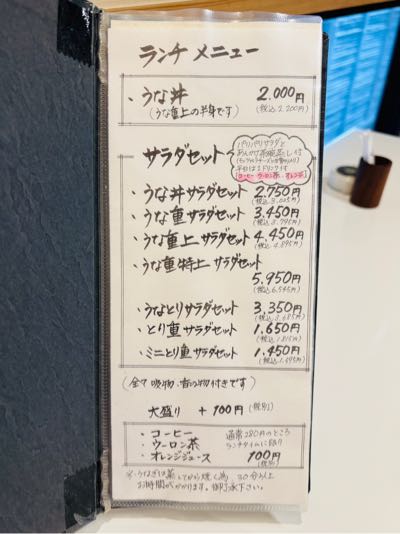 ランチ メニュー
・うな丼 2.000円
(うな重上の半身です) (税込 2.200円)
サラダセット
パリパリサラダと
[コーヒー ウーロン茶・オレンジ]
・うな丼サラダセット 2.750円
(税込 3.025円)
・うな重 サラダセット 3.450円
(税込 3.795円)
・うな重上 サラダセット 4.450円
(税込 4.895円)
・うな重特上 サラダセット
5.950円
(税込 6.545円)
・うなとりサラダセット 3.350円
(税込 3.685円)
・とり重 サラダセット 1.650円
(税込 1.815円)
・ミニとり重 サラダセット 1.450円
(税込 1.595円)
(全て 吸物・香の物付きです)
大盛り + 100円 (税別)
・コーヒー 通常280円のところ
・ウーロン茶 ランチタイムに限り
・オレンジジュース 100円
(税別)
※・うなぎは蒸してから焼く為 30分以上
お時間がかかります。御了承下さい。